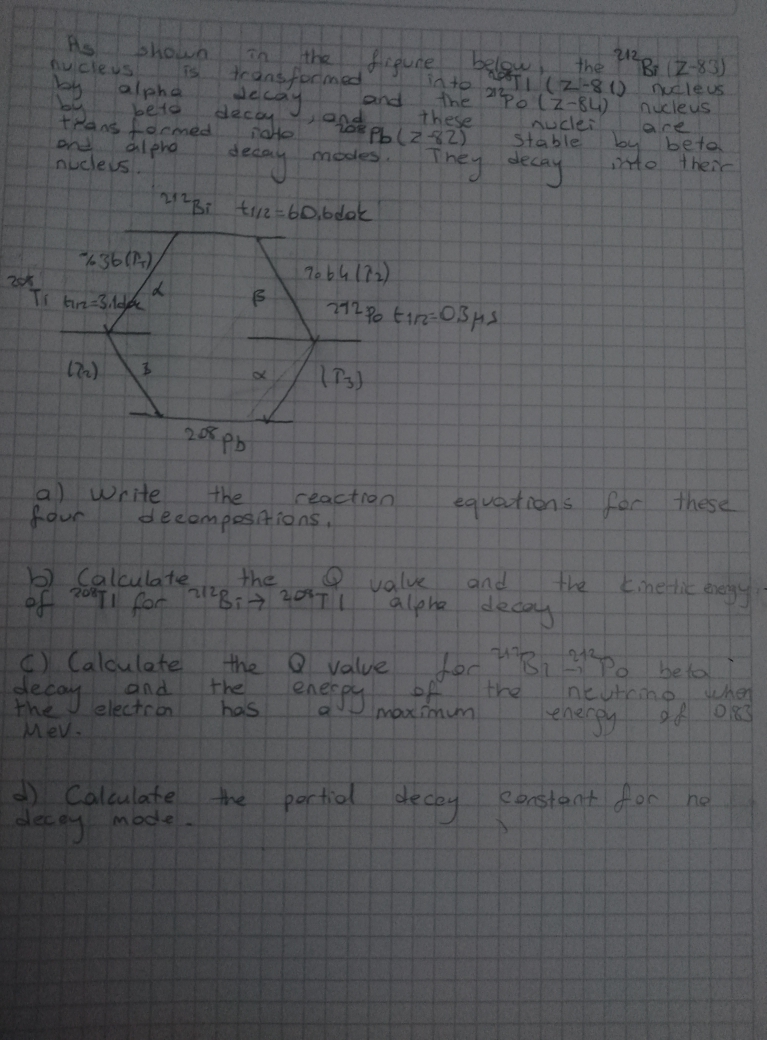 As shown in the figure below, the ²¹²Bi (Z-83)
nucleus is transformed into ²⁰⁸Tl (Z-81) nucleus
by alpha decay and the ²¹²Po (Z-84) nucleus
by beta decay, and these nuclei are
transformed into ²⁰⁸Pb (Z-82) stable by beta
and alpha decay modes. They decay into their
nucleus.
²¹²Bi t1/2=60.6dak
%36(P₁)
%64(P₂)
α
β
²⁰⁸Tl t1/2=3.1dak
²¹²Po t1/2=03μs
(P₂)
β
α
(P₃)
²⁰⁸Pb
a) Write the reaction equations for these
four decompositions.
b) Calculate the Q value and the kinetic
of ²⁰⁸Tl for ²¹²Bi → ²⁰⁸Tl alpha decay
c) Calculate the Q value for ²¹²Bi → ²¹²Po beta
decay and the energy of the neutrino when
the electron has a maximum energy of 0,83
MeV.
d) Calculate the partial decay constant for no
decay mode.